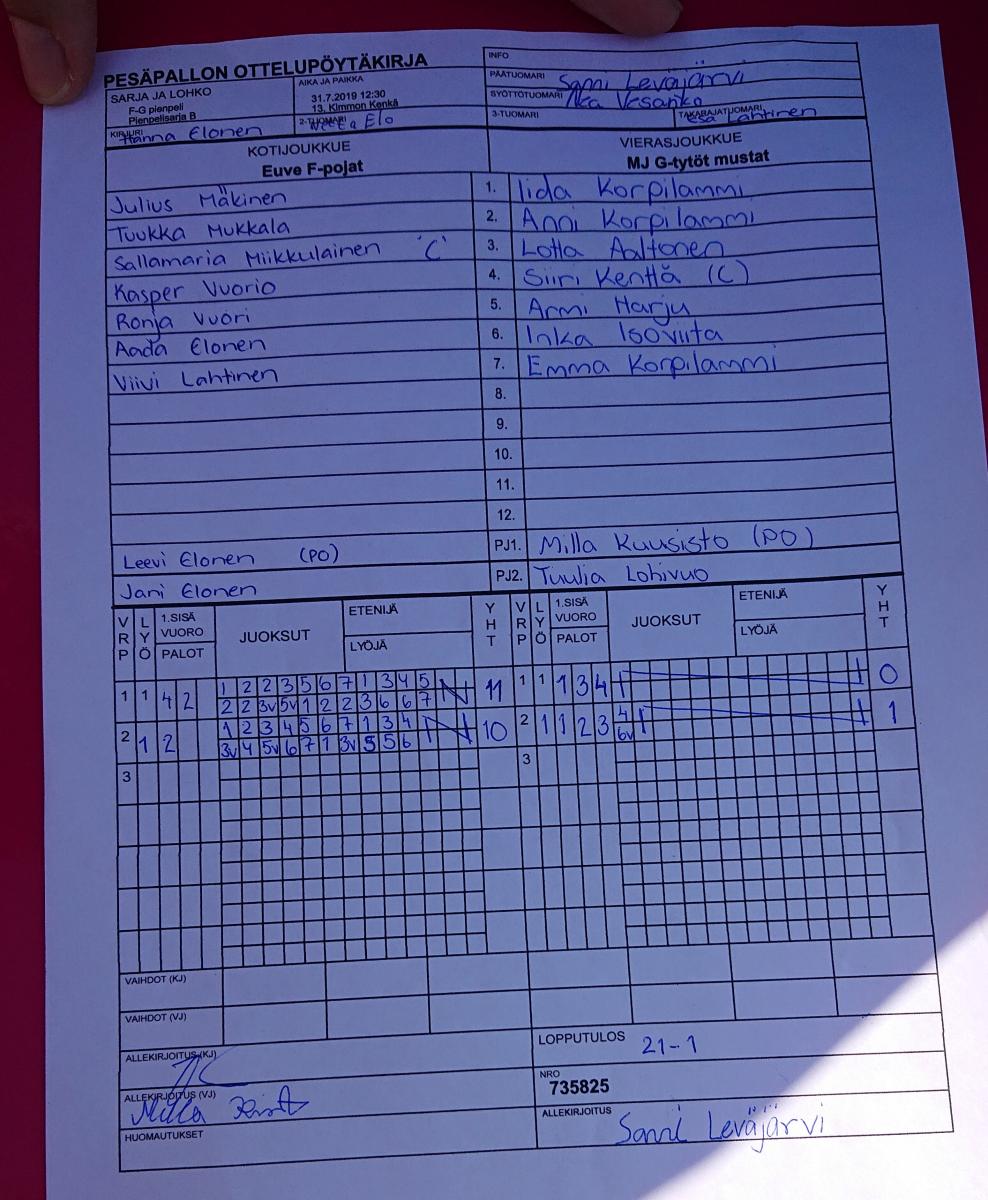 PESÄPALLON OTTELUPÖYTÄKIRJA
SARJA JA LOHKO
F-G pienpeli
Pienpelisarja B
AIKA JA PAIKKA
31.7.2019 12:30
13. Kimmon Kenkä
KIRJURI Hanna Elonen
2-TUOMARI Elo
INFO
PÄÄTUOMARI Sonni Leväjärvi
SYÖTTÖTUOMARI Vesanko
3-TUOMARI
TAKARAJATUOMARI Esa Lahtinen
KOTIJOUKKUE
Euve F-pojat
VIERASJOUKKUE
MJ G-tytöt mustat
Julius Mäkinen 1. Iida Korpilammi
Tuukka Mukkala 2. Anni Korpilammi
Sallamaria Miikkulainen 'C' 3. Lotta Aaltonen
Kasper Vuorio 4. Siiri Kenttä (C)
Ronja Vuori 5. Armi Harju
Aada Elonen 6. Inka Isoviita
Viivi Lahtinen 7. Emma Korpilammi
8.
9.
10.
11.
12.
Leevi Elonen (PO) PJ1. Milla Kuusisto (PO)
Jani Elonen PJ2. Tuulia Lohivuo
VRP LYÖ 1.SISÄ VUORO PALOT JUOKSUT ETENIJÄ LYÖJÄ YHT VRP LYÖ 1.SISÄ VUORO PALOT JUOKSUT ETENIJÄ LYÖJÄ YHT
1 1 4 2 1 2 2 3 5 6 7 1 3 4 5 11 1 1 1 3 4 0
2 2 3v 5v 1 2 2 3 6 6 7
2 1 2 1 2 3 4 5 6 7 1 3 4 10 2 1 1 2 3 4 1
3v 4 5v 6 7 1 3v 5 5 6 6v
3 3
VAIHDOT (KJ)
VAIHDOT (VJ)
ALLEKIRJOITUS (KJ)
LOPPUTULOS 21-1
ALLEKIRJOITUS (VJ) Milla
NRO
735825
HUOMAUTUKSET
ALLEKIRJOITUS Sonni Leväjärvi